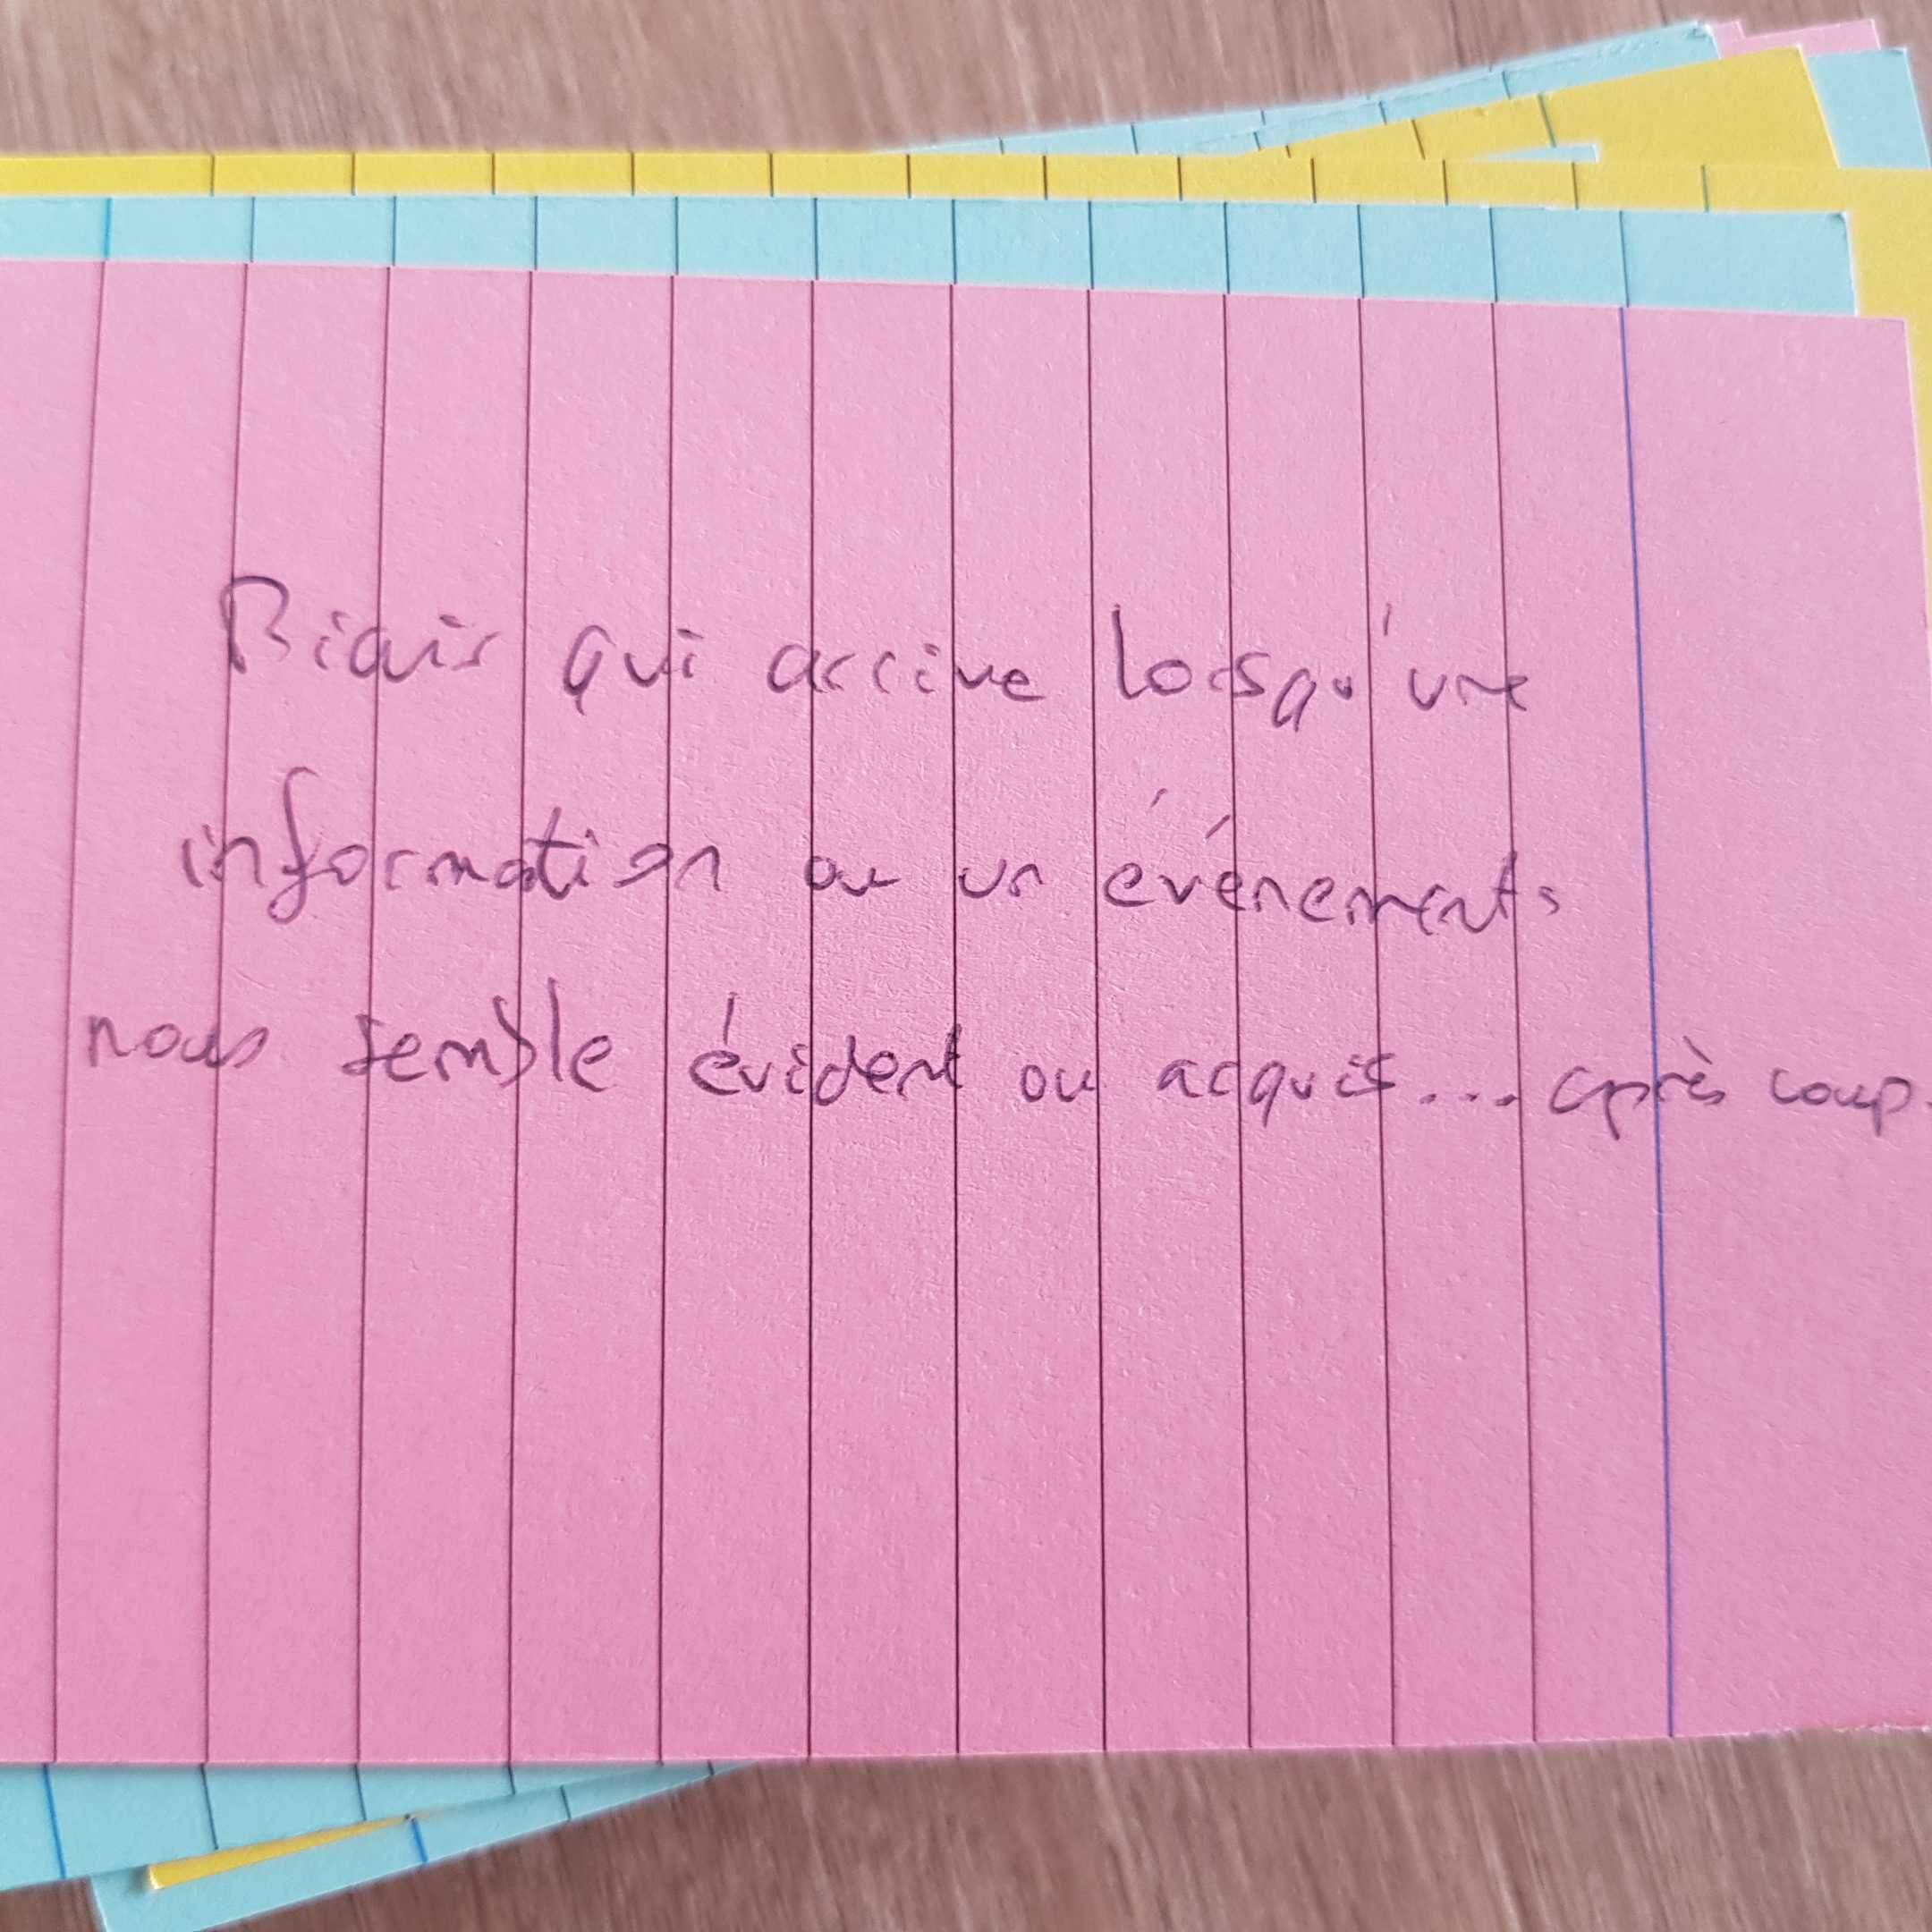 Biais qui arrive lorsqu'une
information ou un événements
nous semble évident ou acquis... après coup.